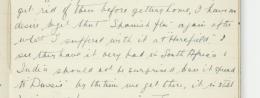 get rid of them before getting home, I have no
desire to get that "Spanish flu" again after
what I suffered with it at "Harefield" I
see they have it very bad in South Africa &
India should not be surprised has it spread
to "Aussie" by the time we get there, it is still